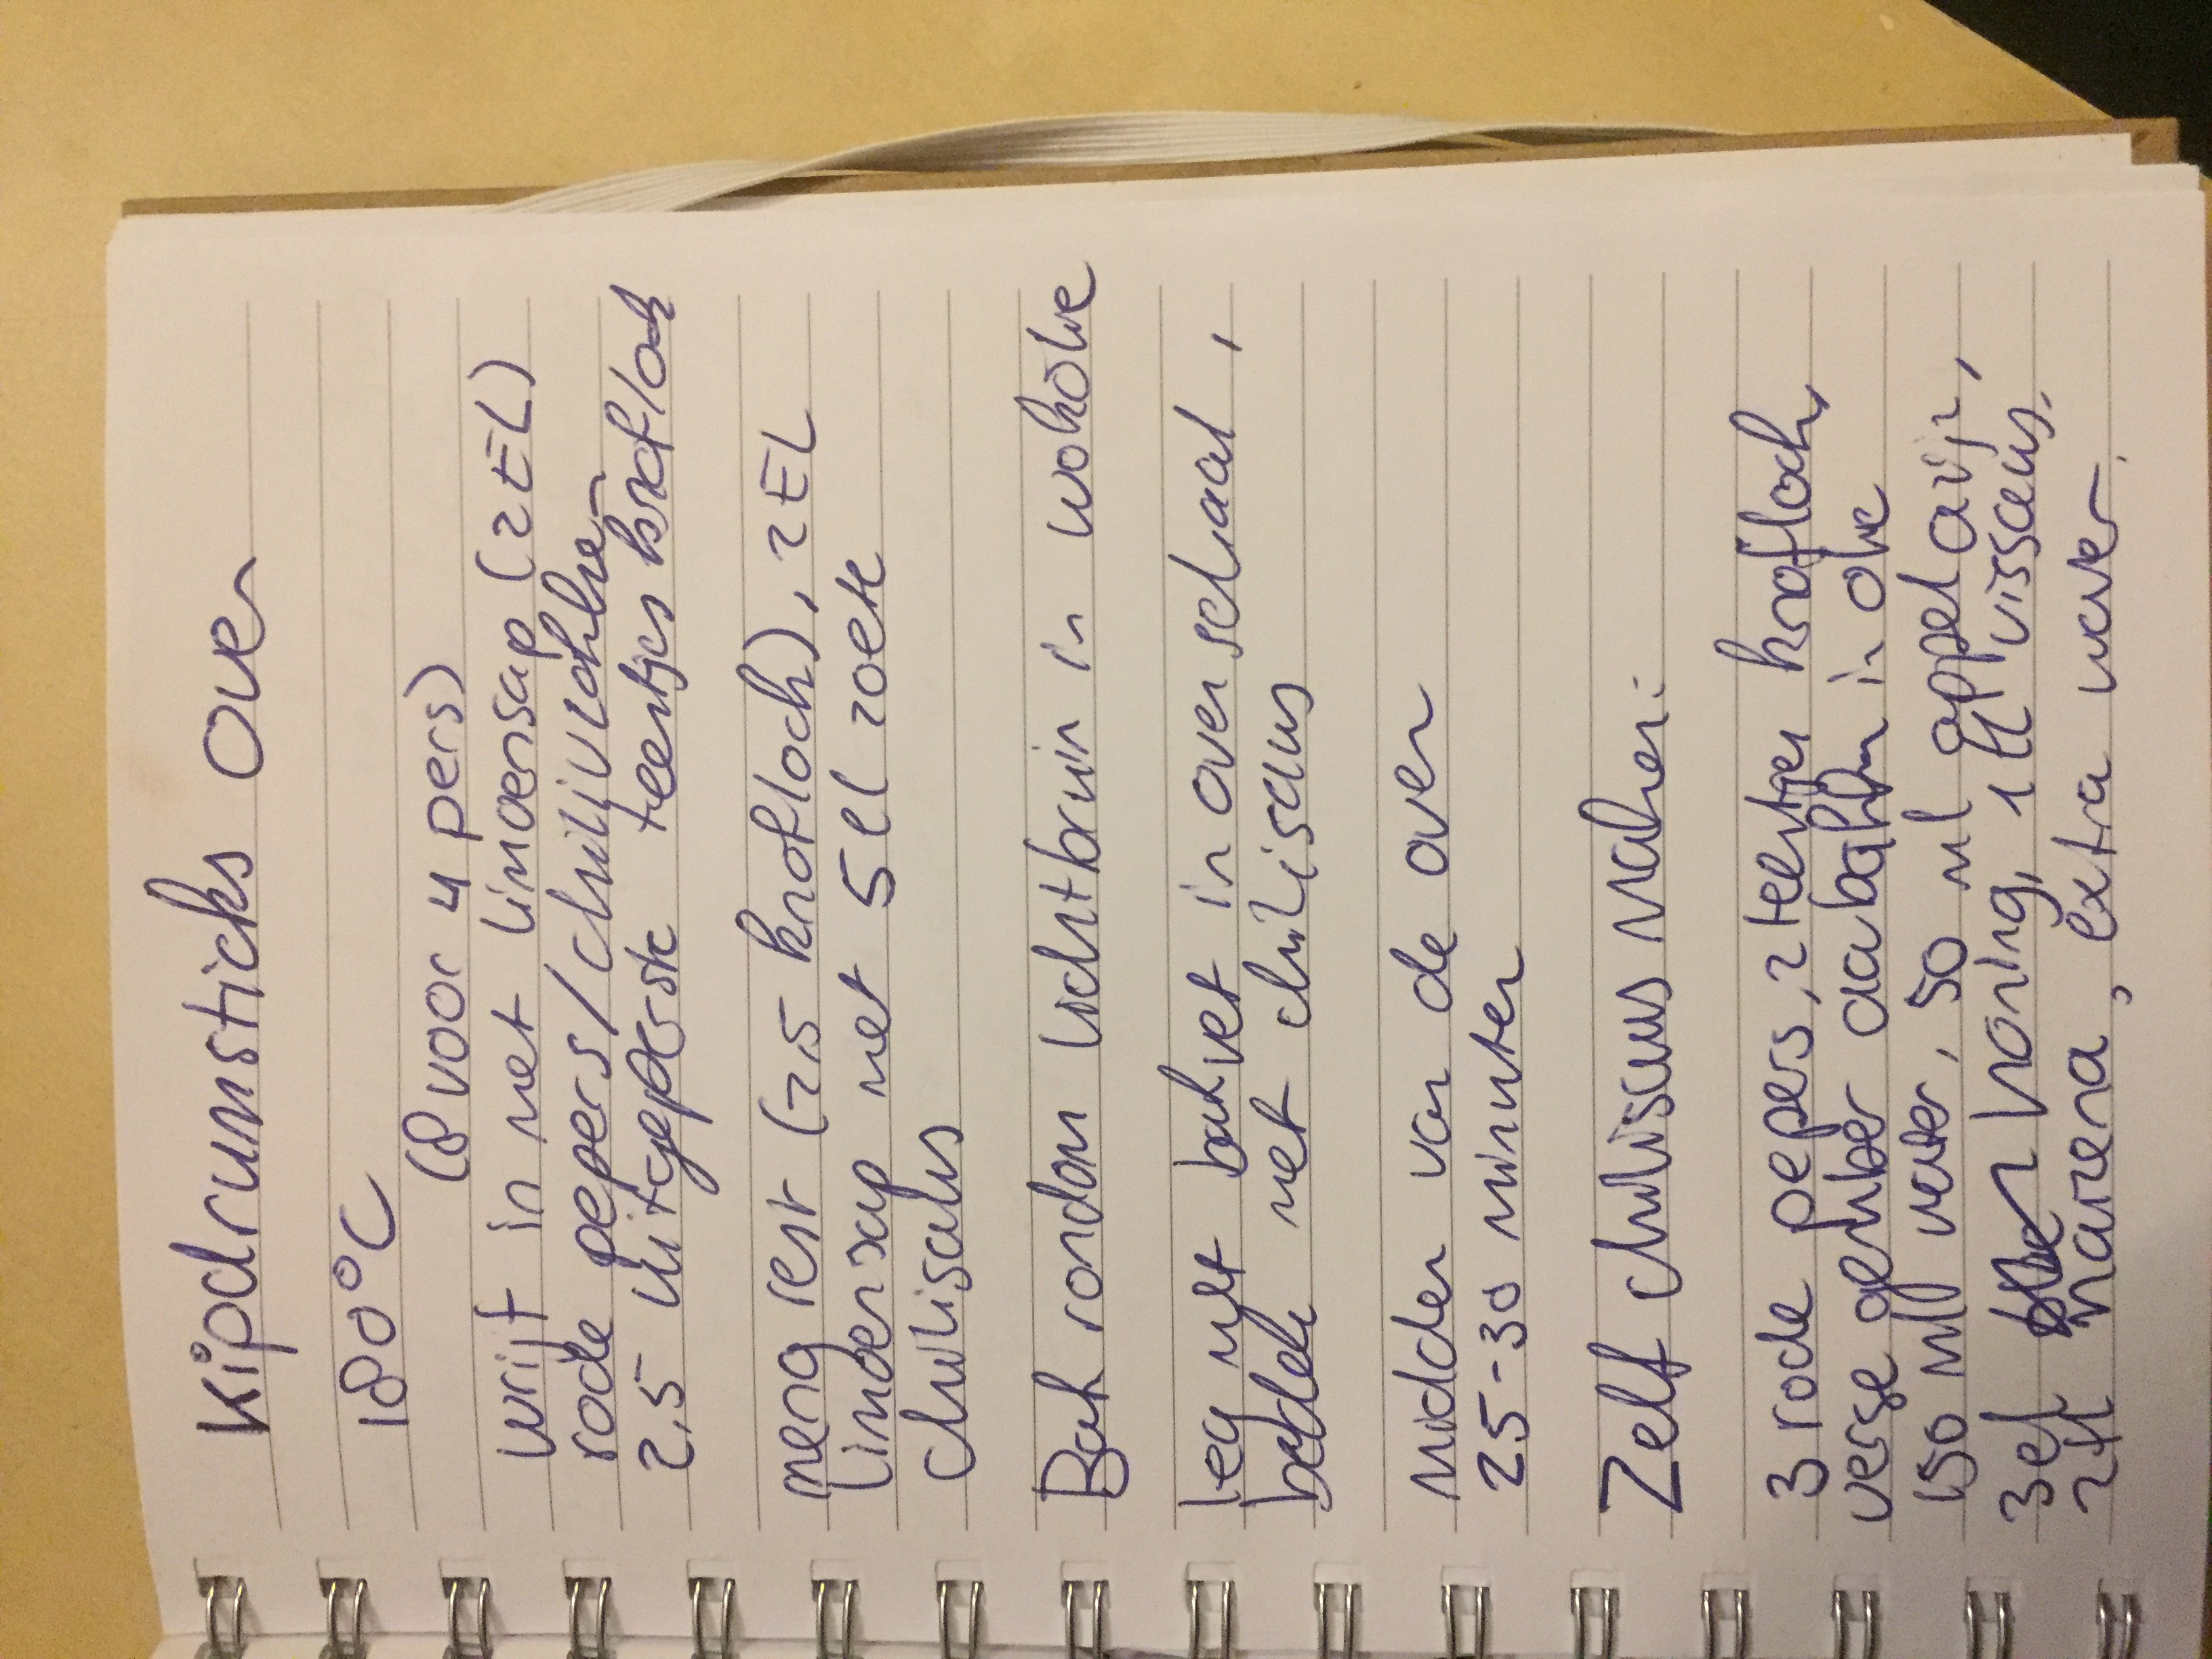 Kipdrumsticks Oven
180°C
(8 voor 4 pers)
wrijf in met limoensap (2EL)
rode pepers/chilivlokken
2,5 uitgeperste teentjes knoflook
meng rest (2,5 knoflook), 2EL
limoensap met 5 el zoete
chilisaus
Bak rondom lichtbruin in wokolie
leg met bakvet in ovenschaal,
bedek met chilisaus
midden van de oven
25-30 minuten
Zelf chilisaus maken:
3 rode pepers, 2 teentjes knoflook,
verse gember in olie
150 ml water, 50 ml appelazijn,
3el honing, 1tl vissaus,
2tl maizena, extra water.